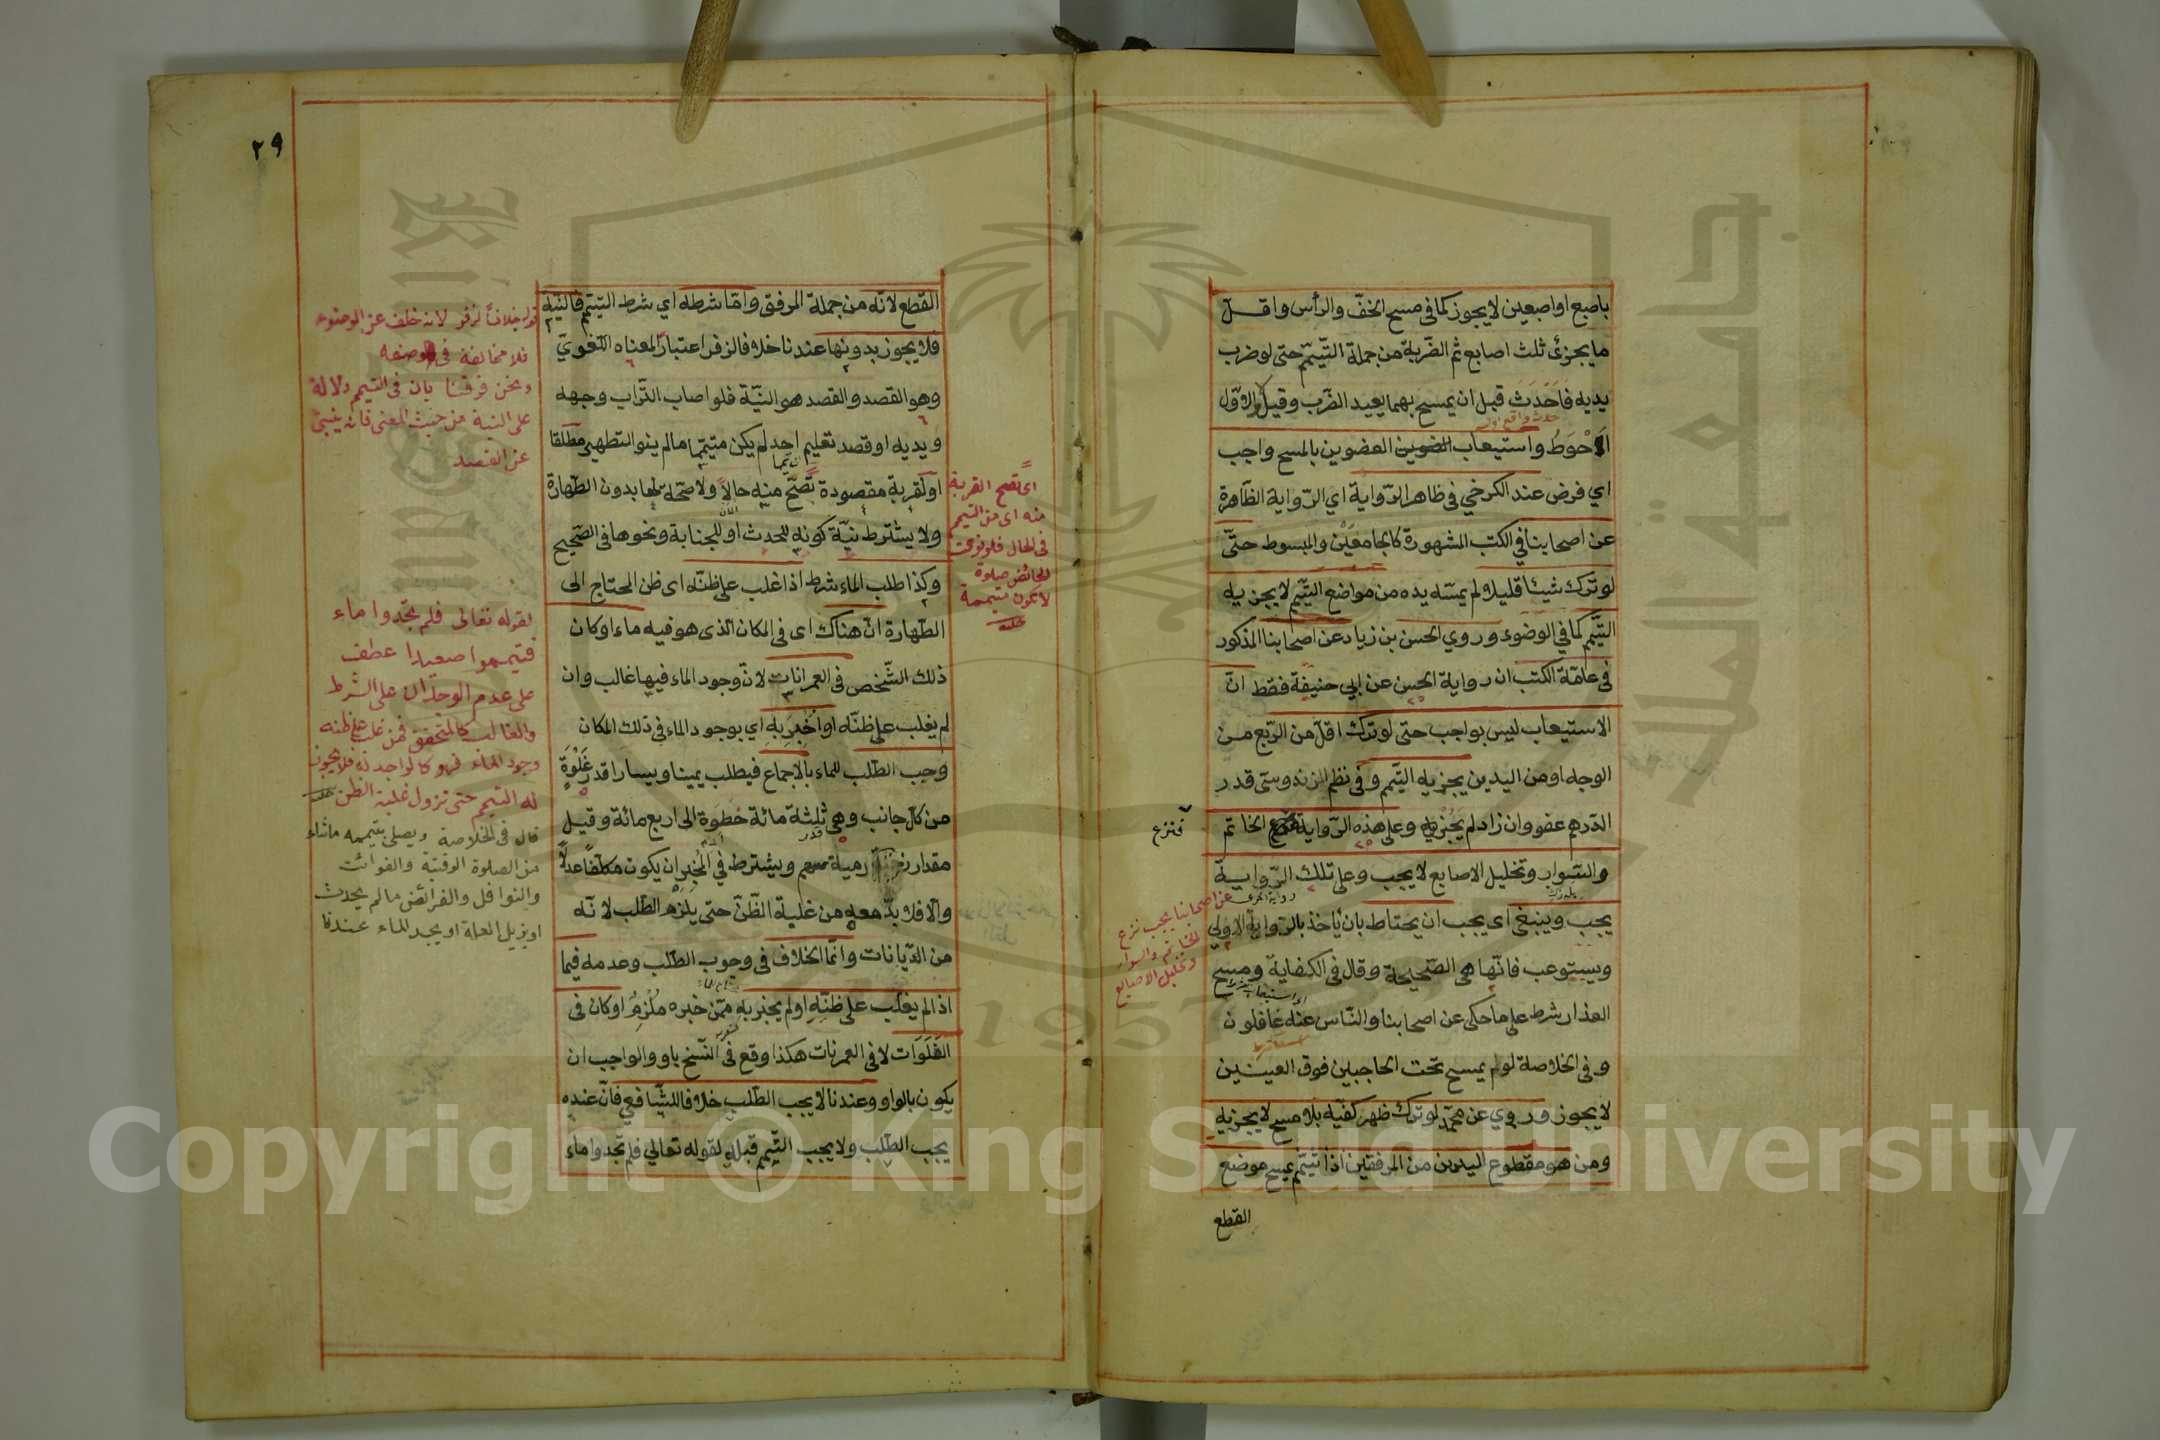 باصبع او اصبعين لا يجوز كما في مسح الخف والرأس واقل
ما يجزئ ثلث اصابع ثم الضربة من جملة التيمم حتى لو ضرب
يديه فاحدث قبل ان يمسح بهما يعيد الضرب وقيل الاول
احوط واستيعاب العضوين بالمسح واجب
اي فرض عند الكرخي في ظاهر الرواية اي الرواية الظاهرة
عن اصحابنا في الكتب المشهورة كالجامعين والمبسوط حتى
لو ترك شيئا قليلا ولم يمسه يده من مواضع التيمم لا يجزيه
التيمم كما في الوضوء وروي الحسن بن زياد عن اصحابنا المذكور
في عامة الكتب ان رواية الحسن عن ابي حنيفة فقط ان
الاستيعاب ليس بواجب حتى لو ترك اقل من الربع من
الوجه او من اليدين يجزيه التيمم وفي نظم الزندوسي قدر
الدرهم عفو وان زاد لم يجزيه وعلى هذه الرواية الخاتم
فنزع
والسوار وتخليل الاصابع لا يجب وعلى تلك الرواية
يجب وينبغي اي يجب ان يحتاط بان يأخذ بالرواية الاولي
ويستوعب فانها هي الصحيحة وقال في الكفاية ومسح
العذار شرط على ما حكى عن اصحابنا والناس عنه غافلون
وفي الخلاصة لو لم يمسح تحت الحاجبين فوق العينين
لا يجوز وروي عن محمد لو ترك ظهر كفيه بلا مسح لا يجزيه
ومن هو مقطوع اليدين من المرفقين اذا تيمم يمسح موضع
القطع
عن اصحابنا يجب نزع
الخاتم والسوار
وتخليل الاصابع
٢٩
القطع لانه من جملة المرفق واما شرطه اي شرط التيمم فالنية
فلا يجوز بدونها عندنا خلافا لزفر اعتبارا لمعناه اللغوي
وهو القصد والقصد هو النية فلو اصاب التراب وجهه
ويديه او قصد تعليم احد لم يكن متيمما ما لم ينو التطهير مطلقا
او لقربة مقصودة تصح منه حالا ولا صحة لها بدون الطهارة
ولا يشترط نية كونه للحدث او للجنابة ونحوها في الصحيح
وكذا طلب الماء شرط اذا غلب على ظنه اى ظن المحتاج الى
الطهارة ان هناك اى في المكان الذى هو فيه ماء او كان
ذلك الشخص في العمرانات لان وجود الماء فيها غالب وان
لم يغلب على ظنه او اخبر به اي بوجود الماء في ذلك المكان
وجب الطلب للماء بالاجماع فيطلب يمينا ويسارا قدر غلوة
من كل جانب وهي ثلثة مائة خطوة الى اربع مائة وقيل
مقدار رمية سهم ويشترط في المخبر ان يكون مكلفا عدلا
والا فلا بد معه من غلبة الظن حتى يلزم الطلب لانه
من الديانات وانما الخلاف في وجوب الطلب وعدمه فيما
اذا لم يغلب على ظنه او لم يخبر به ممن خبره ملزم او كان في
الفلوات لا في العمرنات هكذا وقع في النسخ باو والواجب ان
يكون بالواو وعندنا لا يجب الطلب خلافا للشافعي فان عنده
يجب الطلب ولا يجب التيمم قبله لقوله تعالي فلم تجدوا ماء
اى تصح القربة
منه اى من التيمم
في الحال فلو نوت
الحائض صلوة
لا تكون متيممة
قوله خلافا لزفر لانه خلف عن الوضوء
فلا مخالفة في وصفه
ونحن فرقنا بان في التيمم دلالة
على النية من حيث المعنى فانه ينبئ
عن القصد
لقوله تعالى فلم تجدوا ماء
فتيمموا صعيدا عطف
على عدم الوجدان على الشرط
والغالب كالمتحقق فمن غلب على ظنه
وجود الماء فهو كالواجد له فلا يجوز
له التيمم حتى تزول غلبة الظن
قال في الخلاصة ويصلى بتيممه ما شاء
من الصلوة الوقتية والفوائت
والنوافل والفرائض ما لم يحدث
او يزيل العلة او يجد الماء عندنا
1957
Copyright © King Saud University